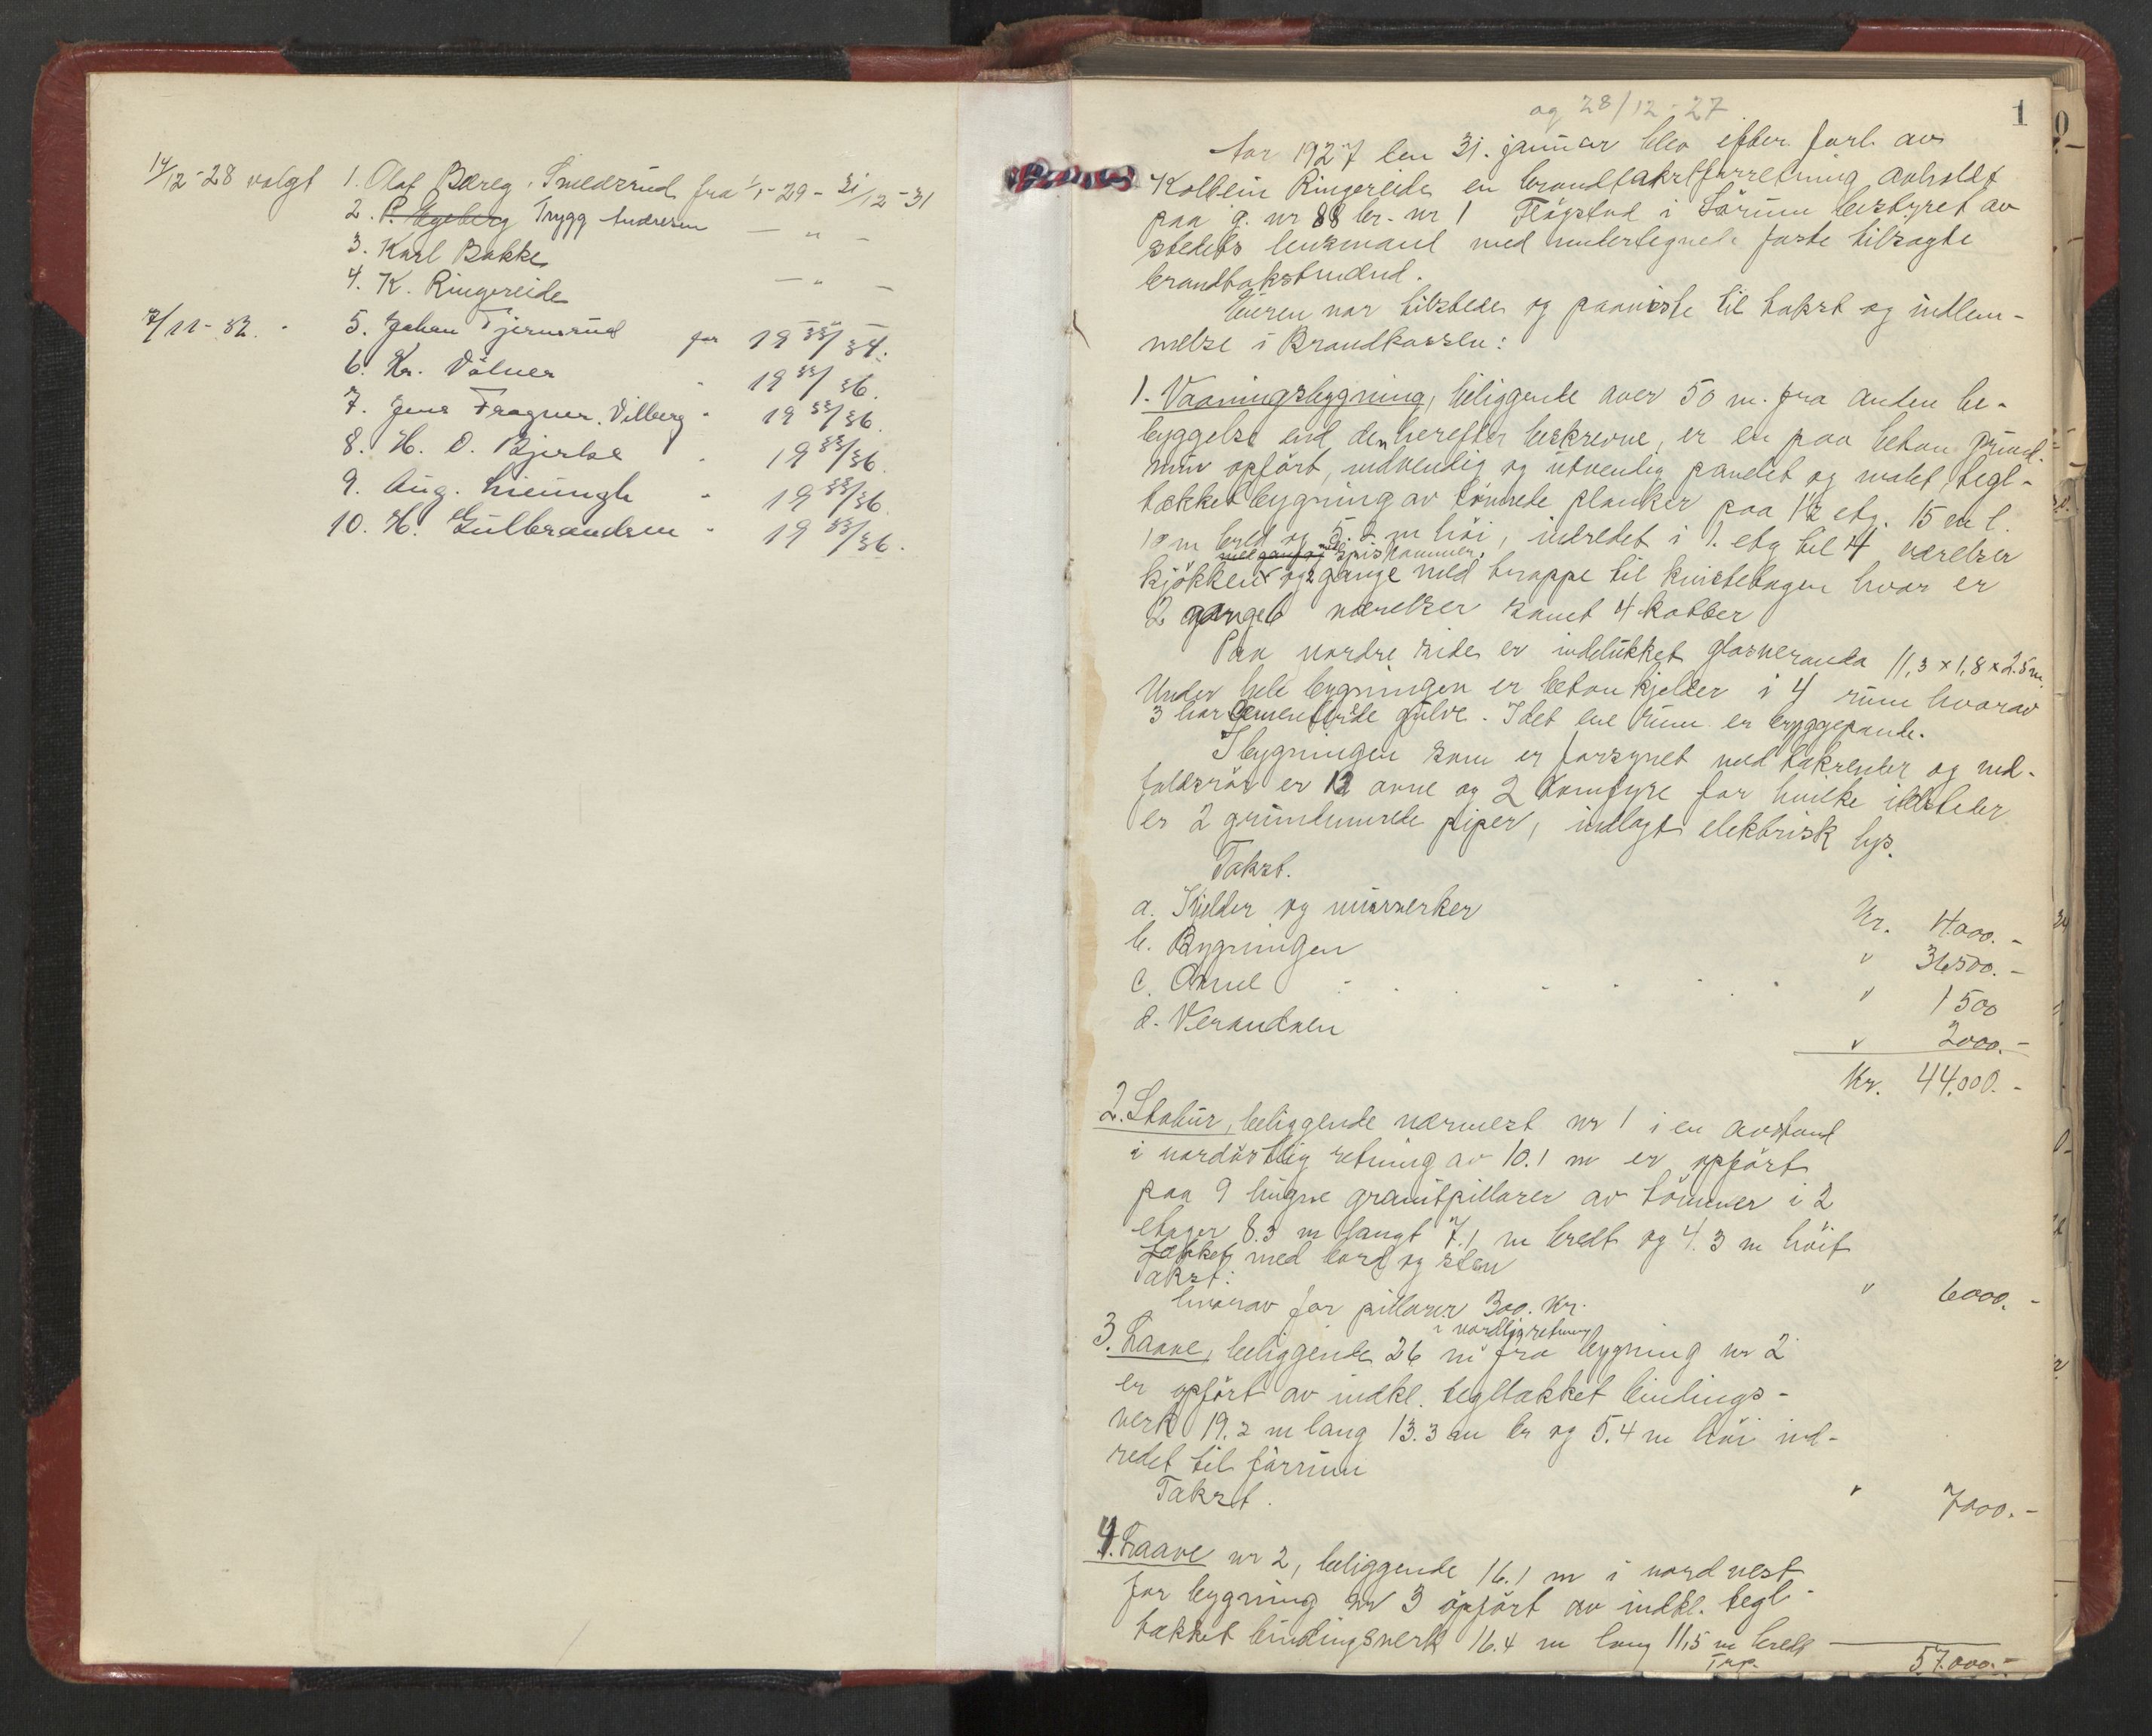 14/12-28 valgt 1. Olaf Berg, Smedsrud fra 1/1-29 - 31/12-31
2. P. Egeberg Trygg Andresen — " —
3. Karl Bakke
4. K. Ringereide — " —
7/11-32. 5. Johan Tjernsrud for 1933/34.
6. Kr. Völner " 1933/36.
7. Jens Fragner, Vilberg " 1933/36.
8. H. O. Bjerke " 1933/36.
9. Aug. Lieungh " 1933/36.
10. H. Gulbrandsen " 1933/36.
1
og 28/12-27
Aar 1927 den 31. januar blev efter forl. av
Kolbein Ringereide en brandtakstforretning avholdt
paa g. nr 88 br. nr 1 Flögstad i Sörum bestyret av
stedets lensmand med undertegnede faste tilsagte
brandtakstmænd.
Eieren var tilstede og paaviste til takst og indlem-
melse i Brandkassen:
1. Vaaningsbygning, beliggende over 50 m. fra anden be-
byggelse end den herefter beskrevne, er en paa beton grund-
mur opfört, indvendig og utvendig panelet og malet, tegl-
tækket bygning av tömrede planker paa 1½ etg. 15 m l.
10 m bred og 5.2 m höi, indredet i 1. etg til 4 værelser
med spiskammer,
kjökken og 2 gange med trappe til kvistetagen hvor er
2 gange 6 værelser samt 4 kotter
Paa nordre side er indelukket glasveranda 11,3 x 1,8 x 2.5 m.
Under hele bygningen er beton kjelder i 4 rum hvorav
3 har cementerede gulve. I det ene rum er bryggepande.
I bygningen som er forsynet med takrender og ned-
faldsrör er 12 ovne og 2 komfyre for hvilke ildsteder
er 2 grundmurede piper, indlagt elektrisk lys.
Takst.
a. Kjelder og murverker Kr. 4.000.-
b. Bygningen " 36500.-
c. Ovne " 1500
d. Verandaen " 2000.-
Kr. 44.000.-
2. Stabur, beliggende nærmest nr 1 i en avstand
i nordöstlig retning av 10.1 m er opfört
paa 9 hugne granitpillarer av tömmer i 2
etager 8.3 m langt 7.1 m bredt og 4.3 m höit
tækket med bord og sten
Takst: " 6000.-
hvorav for pillarer 300. Kr.
i nordlig retning
3. Laave, beliggende 26 m fra bygning nr 2
er opfört av indkl. tegltækket bindings-
verk 19.2 m lang 13.3 m br og 5.4 m höi ind-
redet til fórrum
Takst. " 7000.-
4. Laave nr 2, beliggende 16.1 m i nord vest
for bygning nr 3 opfört av indkl. tegl-
tækket bindingsverk 16.4 m lang 11,5 m bredt
Trp. 57.000.-